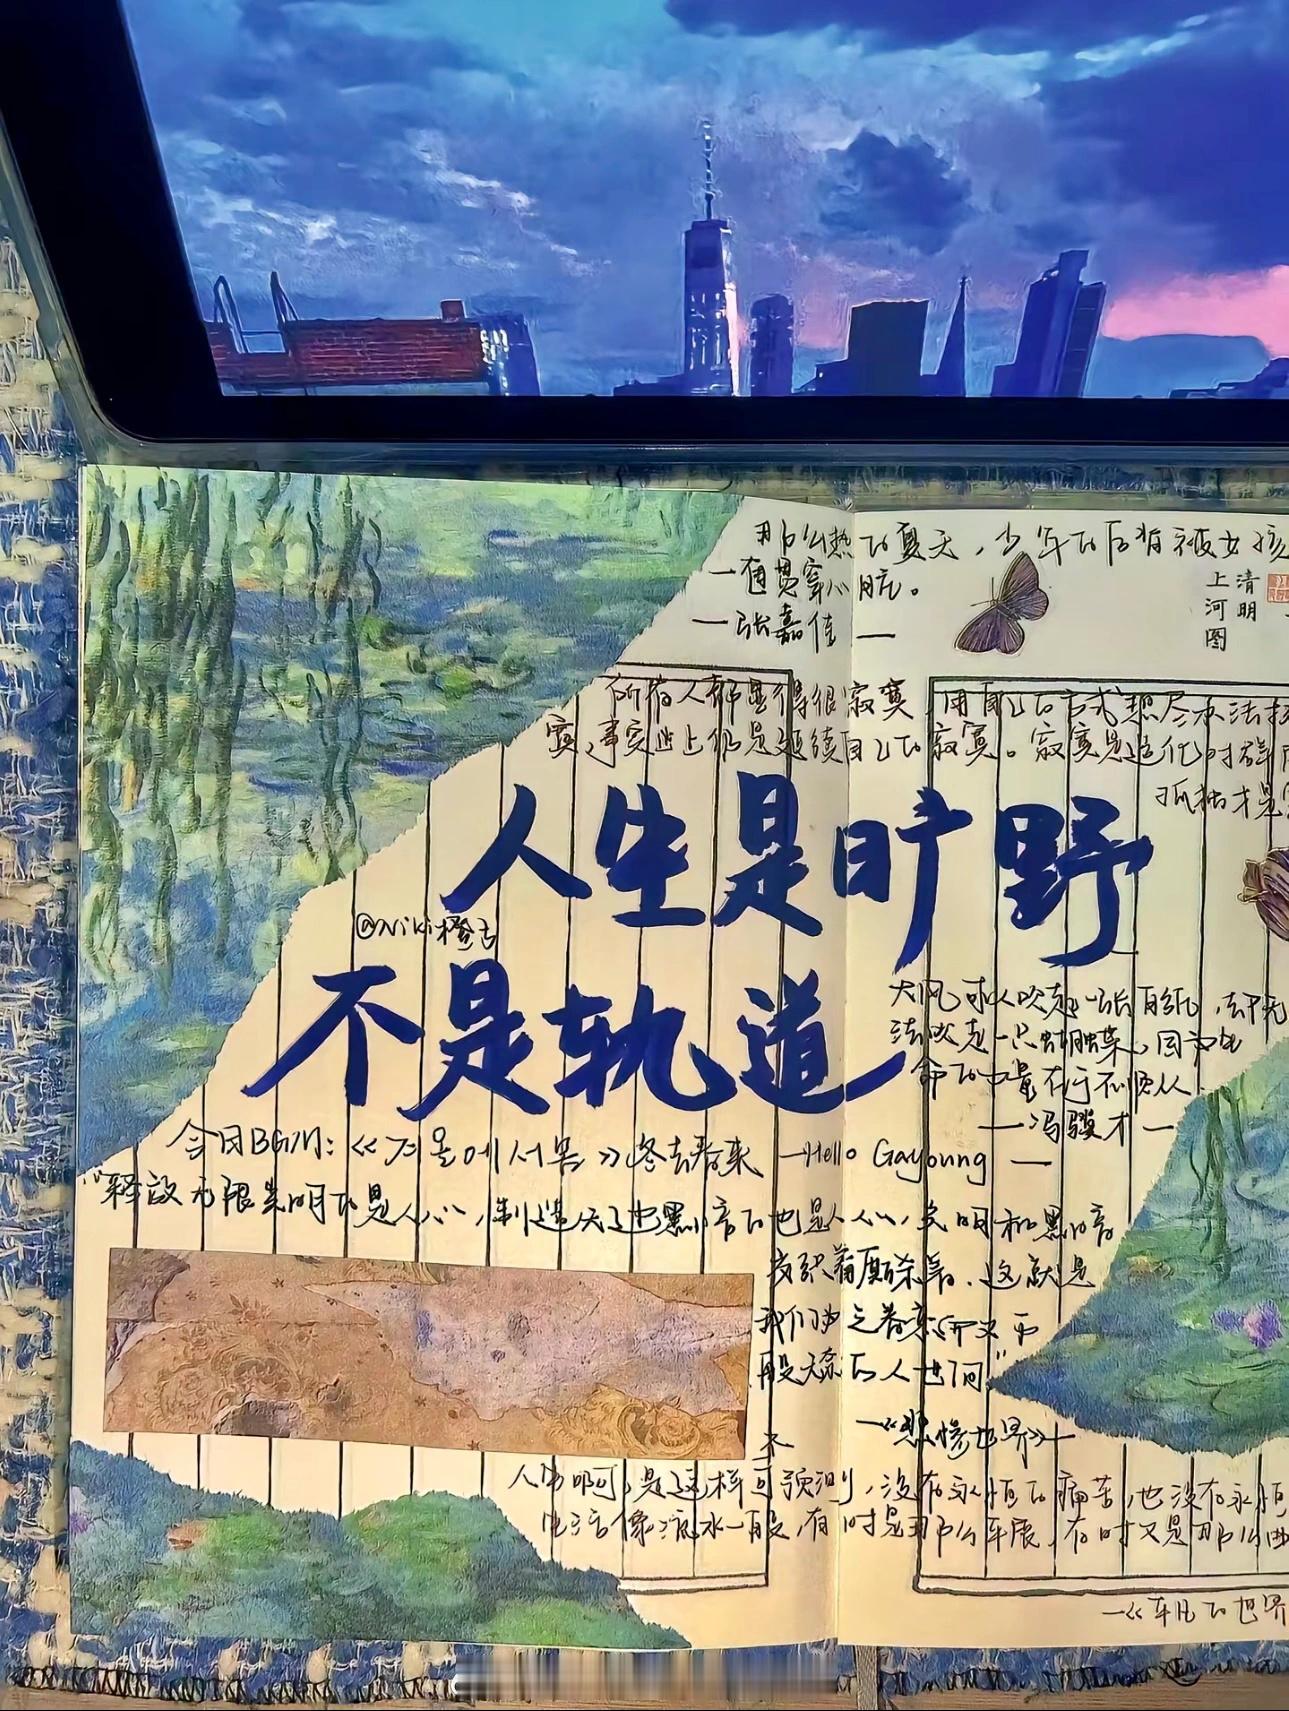 那么热的夏天，少年的后背被女孩
一直贯穿心脏。
—张嘉佳—
清明
上河图
所有人都显得很寂寞，用自己的方式想尽办法排
寞，事实上仍是延续自己的寂寞。寂寞是造化对群
孤独才是
人生是旷野
@Niki橙子
不是轨道
大风可以吹起一张白纸，却无
法吹走一只蝴蝶，因为生
命的力量在于不顺从.
—冯骥才—
今日BGM：《 》冬去春来 —Hello Gayoung—
"释放无限光明的是人心，制造无边黑暗的也是人心，光明和黑暗
交织着厮杀着，这就是
我们为之眷恋而又而
再没无奈的人世间"
—《悲惨世界》—
不
人生啊，是这样可预测，没有永恒的痛苦，也没有永恒
生活像流水一般，有时是那么平展，有时又是那么曲
—《平凡的世界